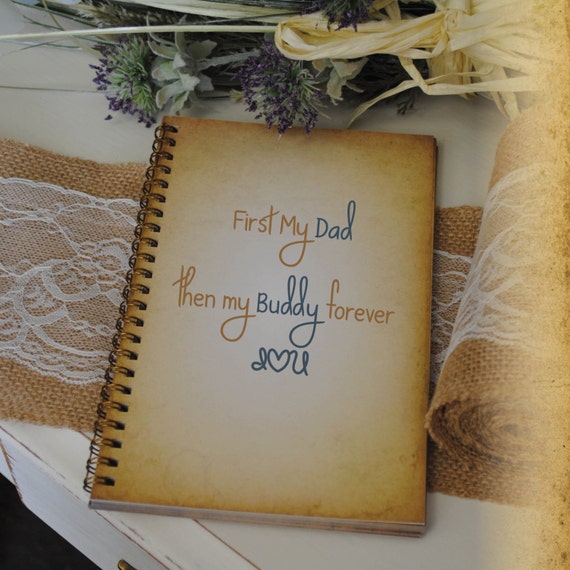 First My Dad
then my Buddy forever
I♥U